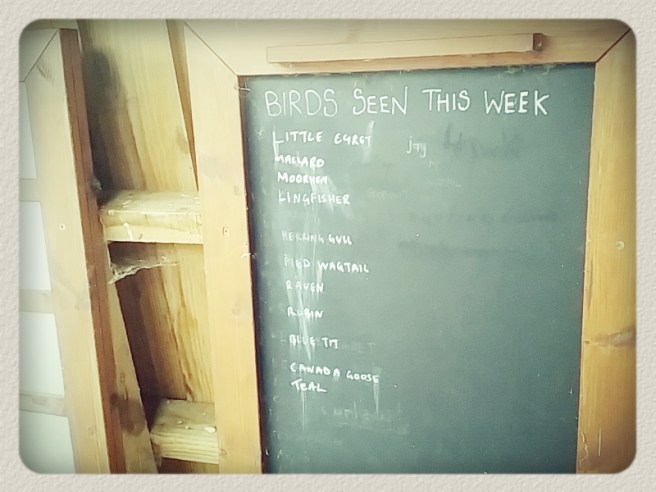 BIRDS SEEN THIS WEEK
LITTLE EGRET
jay
MALLARD
MOORHEN
KINGFISHER
HERRING GULL
PIED WAGTAIL
RAVEN
ROBIN
BLUE TIT
CANADA GOOSE
TEAL